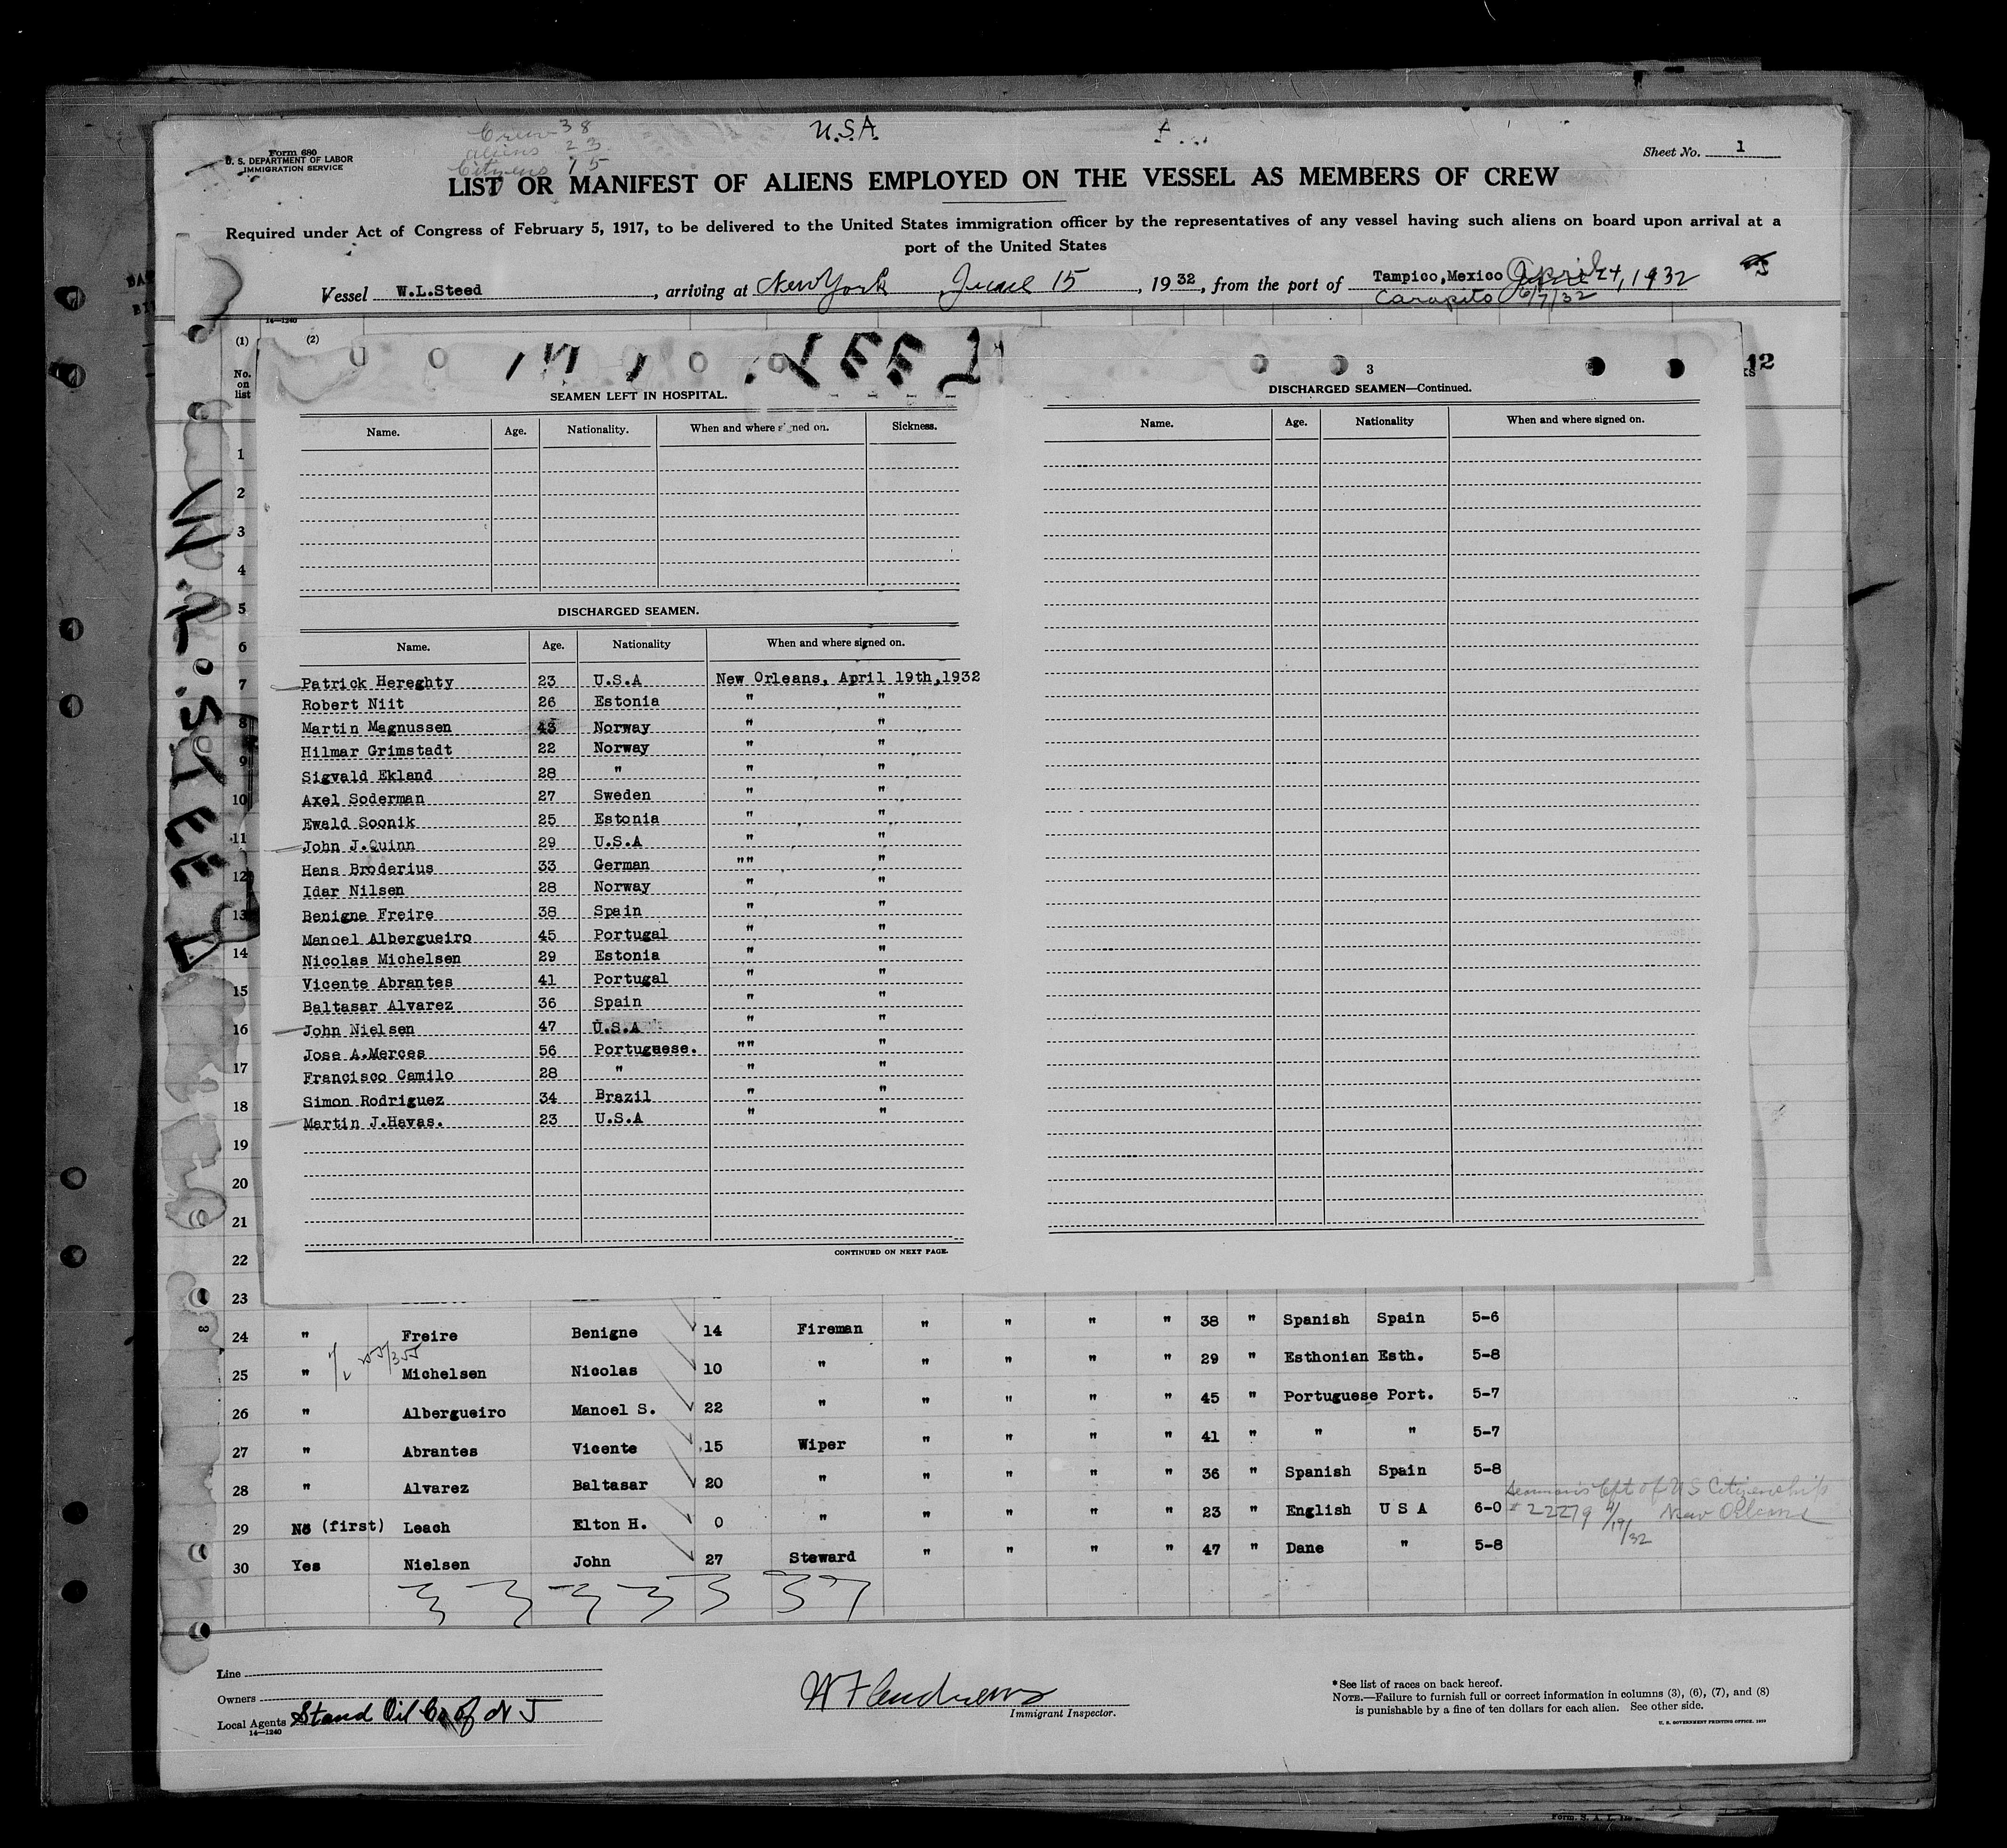 Crew 38
U.S.A.
aliens 23
Citizens 15
Form 680
U. S. DEPARTMENT OF LABOR
IMMIGRATION SERVICE
Sheet No. 1
LIST OR MANIFEST OF ALIENS EMPLOYED ON THE VESSEL AS MEMBERS OF CREW
Required under Act of Congress of February 5, 1917, to be delivered to the United States immigration officer by the representatives of any vessel having such aliens on board upon arrival at a
port of the United States
Vessel W.L.Steed, arriving at New York June 15, 1932, from the port of Tampico,Mexico April 24, 1932
Caripito 6/7/32
14—1240
(1) (2)
No. on list
W.L.STEED
3
12
SEAMEN LEFT IN HOSPITAL.
Name. Age. Nationality. When and where signed on. Sickness.
DISCHARGED SEAMEN.
Name. Age. Nationality When and where signed on.
Patrick Hereghty 23 U.S.A New Orleans, April 19th,1932
Robert Niit 26 Estonia " "
Martin Magnussen 43 Norway " "
Hilmar Grimstadt 22 Norway " "
Sigvald Ekland 28 " " "
Axel Soderman 27 Sweden " "
Ewald Soonik 25 Estonia " "
John J.Quinn 29 U.S.A " "
Hans Broderius 33 German "" "
Idar Nilsen 28 Norway " "
Benigne Freire 38 Spain " "
Manoel Albergueiro 45 Portugal " "
Nicolas Michelsen 29 Estonia " "
Vicente Abrantes 41 Portugal " "
Baltasar Alvarez 36 Spain " "
John Nielsen 47 U.S.A " "
Jose A.Merces 56 Portuguese. "" "
Francisco Camilo 28 " " "
Simon Rodriguez 34 Brazil " "
Martin J.Havas. 23 U.S.A " "
CONTINUED ON NEXT PAGE.
DISCHARGED SEAMEN—Continued.
Name. Age. Nationality When and where signed on.
1
2
3
4
5
6
7
8
9
10
11
12
13
14
15
16
17
18
19
20
21
22
23
24 " Freire Benigne 14 Fireman " " " " 38 " Spanish Spain 5-6
25 " Michelsen Nicolas 10 " " " " " 29 " Esthonian Esth. 5-8
26 " Albergueiro Manoel S. 22 " " " " " 45 " Portuguese Port. 5-7
27 " Abrantes Vicente 15 Wiper " " " " 41 " " " 5-7
28 " Alvarez Baltasar 20 " " " " " 36 " Spanish Spain 5-8
Seaman's Cft of US Citizenship
29 No (first) Leach Elton H. 0 " " " " " 23 " English U S A 6-0 # 22279 4/19/32 New Orleans
30 Yes Nielsen John 27 Steward " " " " 47 " Dane " 5-8
Line
Owners
Local Agents Stand Oil Co of N J
14—1240
W F Andrews
Immigrant Inspector.
*See list of races on back hereof.
NOTE.—Failure to furnish full or correct information in columns (3), (6), (7), and (8)
is punishable by a fine of ten dollars for each alien. See other side.
U. S. GOVERNMENT PRINTING OFFICE